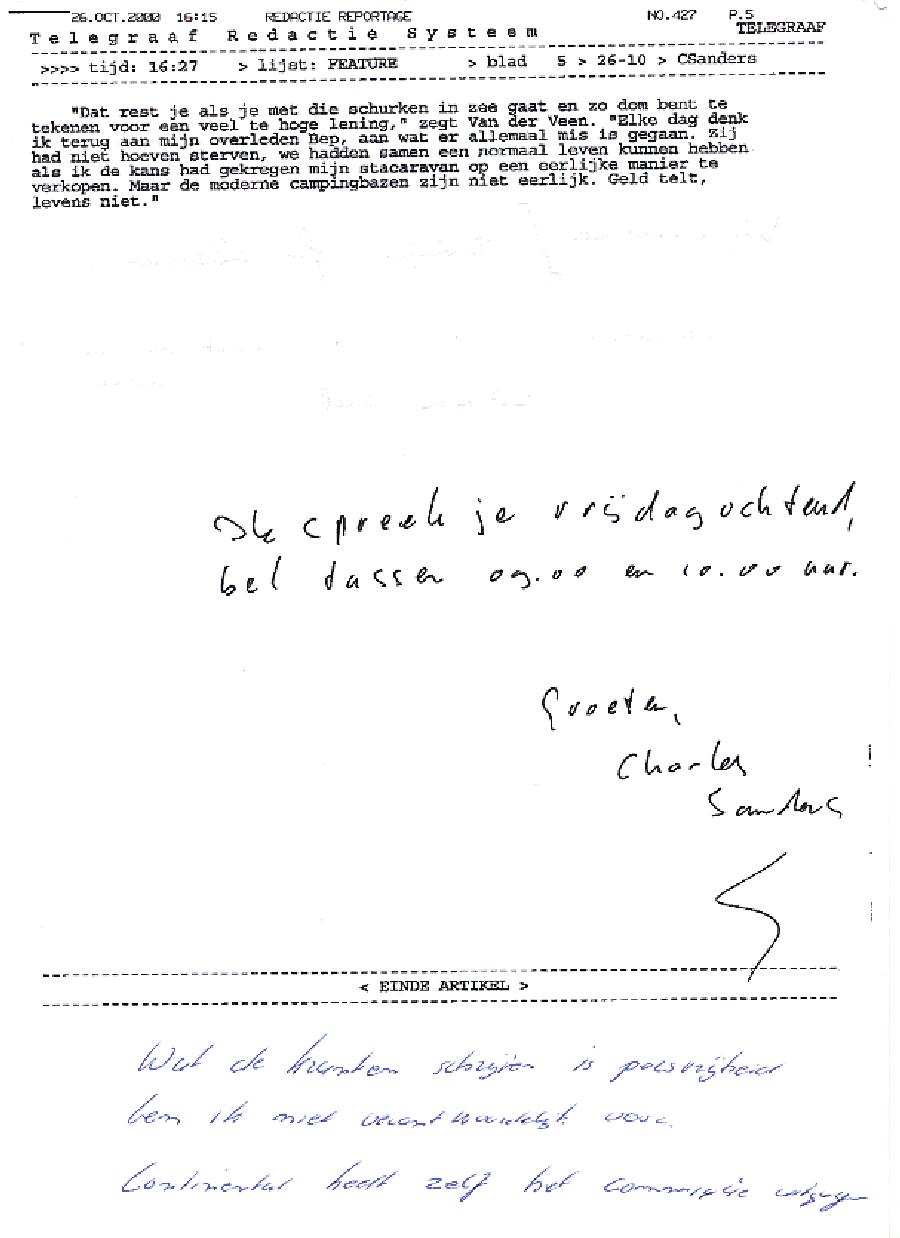 26.OCT.2000 16:15 REDACTIE REPORTAGE NO.427 P.5
Telegraaf Redactie Systeem TELEGRAAF
>>>> tijd: 16:27 > lijst: FEATURE > blad 5 > 26-10 > CSanders
"Dat rest je als je met die schurken in zee gaat en zo dom bent te
tekenen voor een veel te hoge lening," zegt Van der Veen. "Elke dag denk
ik terug aan mijn overleden Bep, aan wat er allemaal mis is gegaan. Zij
had niet hoeven sterven, we hadden samen een normaal leven kunnen hebben
als ik de kans had gekregen mijn stacaravan op een eerlijke manier te
verkopen. Maar de moderne campingbazen zijn niet eerlijk. Geld telt,
levens niet."
Ik spreek je vrijdagochtend,
bel tussen 09.00 en 10.00 uur.
Groeten,
Charles
Sanders
< EINDE ARTIKEL >
Wat de kranten schrijven is persvrijheid
ben ik niet verantwoordelijk voor
Continental heeft zelf het